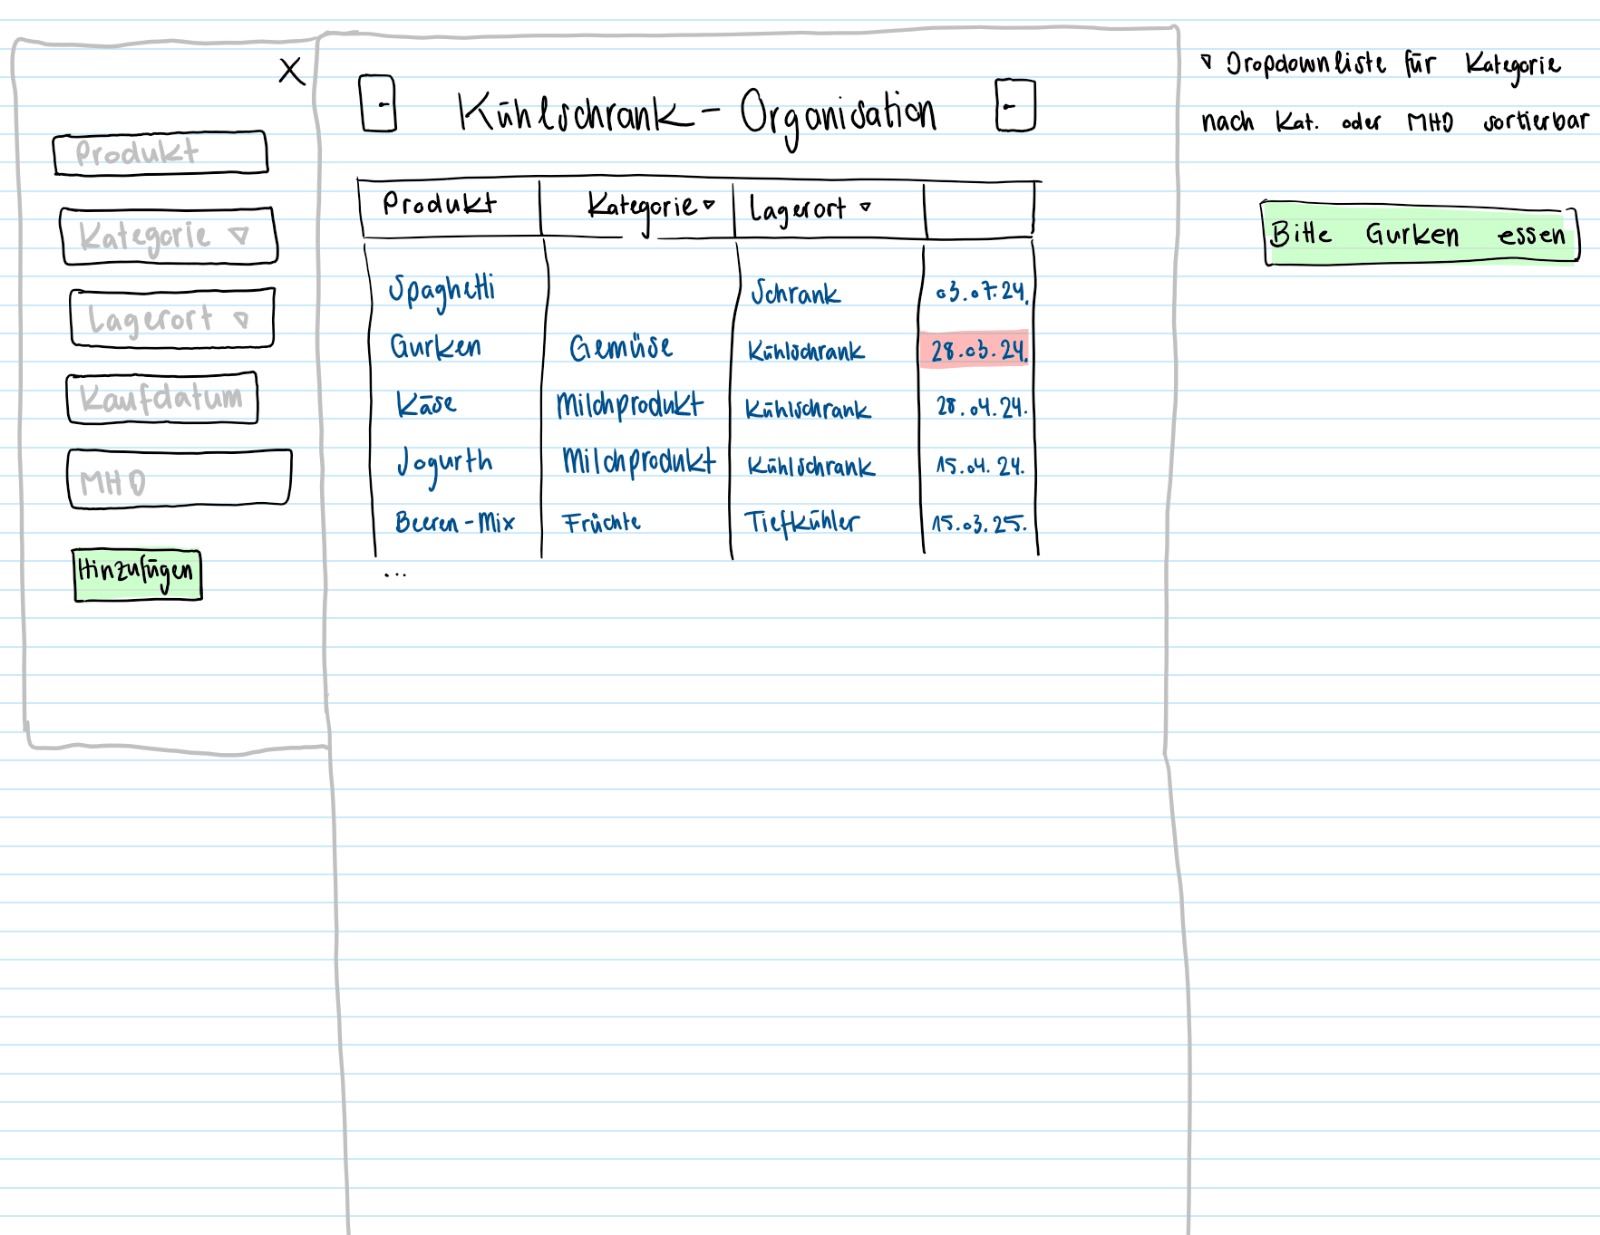 X
Produkt
Kategorie ▽
Lagerort ▽
Kaufdatum
MHD
Hinzufügen
Kühlschrank - Organisation
Produkt Kategorie ▽ Lagerort ▽
Spaghetti Schrank 03.07.24.
Gurken Gemüse Kühlschrank 28.03.24.
Käse Milchprodukt Kühlschrank 28.04.24.
Jogurth Milchprodukt Kühlschrank 15.04.24.
Beeren-Mix Früchte Tiefkühler 15.03.25.
...
▽ Dropdownliste für Kategorie
nach Kat. oder MHD sortierbar
Bitte Gurken essen